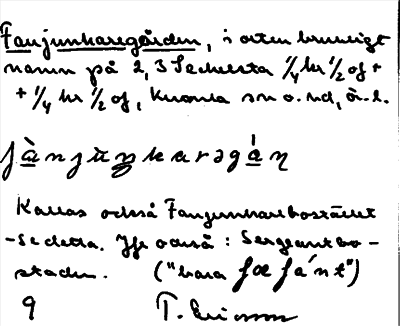 Fanjunkaregården, i orten brukligt
namn på 2, 3 Sechelsta 1/4 hr 1/2 of +
+ 1/4 hr 1/2 of, Kvarsta sn o. hd, Ö.l.
fànjuŋkarəgá̱ṇ
Kallas också Fanjunkarebostället
- se detta. Jfr också: Sergeantbo-
staden. ("bara          ")
9 T. Ericsson